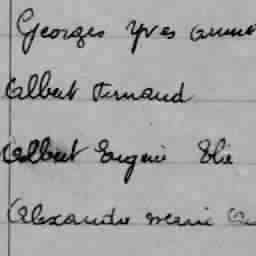 Georges Yves
Albert Fernand
Albert Eugène Elie
Alexandre Marie